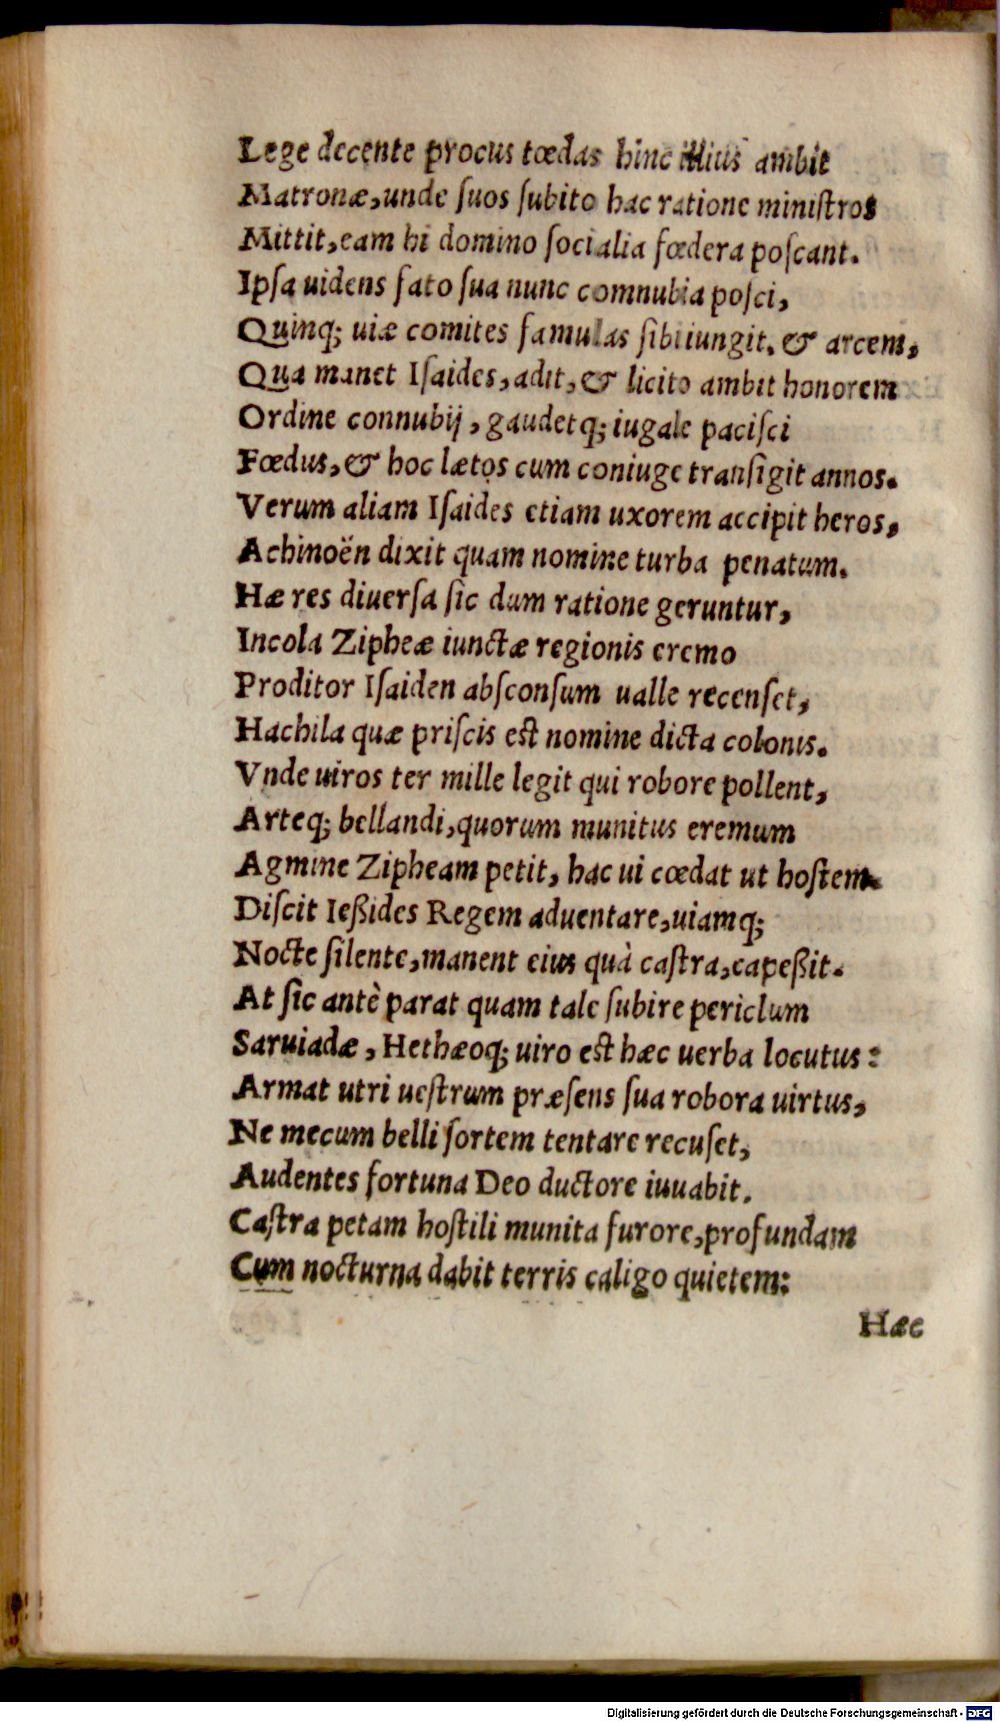 Lege decente procus tœdas hinc illius ambit
Matronæ, unde ſuos ſubito hac ratione miniſtros
Mittit, eam hi domino ſocialia fœdera poſcant.
Ipſa uidens fato ſua nunc comnubia poſci,
Quinq; uiæ comites famulas ſibi iungit. & arcem,
Qua manet Iſaides, adit, & licito ambit honorem
Ordine connubij, gaudetq; iugale paciſci
Fœdus, & hoc lætos cum coniuge tranſigit annos.
Verum aliam Iſaides etiam uxorem accipit heros,
Achinoën dixit quam nomine turba penatum.
Hæ res diuerſa ſic dum ratione geruntur,
Incola Zipheæ iunctæ regionis eremo
Proditor Iſaiden abſconſum ualle recenſet,
Hachila quæ priſcis eſt nomine dicta colonis.
Vnde uiros ter mille legit qui robore pollent,
Arteq; bellandi, quorum munitus eremum
Agmine Zipheam petit, hac ui cœdat ut hoſtem.
Diſcit Ießides Regem aduentare, uiamq;
Nocte ſilente, manent eius quà caſtra, capeßit.
At ſic antè parat quam tale ſubire periclum
Saruiadæ, Hethæoq; uiro eſt hæc uerba locutus:
Armat utri ueſtrum præſens ſua robora uirtus,
Ne mecum belli ſortem tentare recuſet,
Audentes fortuna Deo ductore iuuabit.
Caſtra petam hoſtili munita furore, profundam
Cum nocturna dabit terris caligo quietem:
Hæc
Digitalisierung gefördert durch die Deutsche Forschungsgemeinschaft - DFG